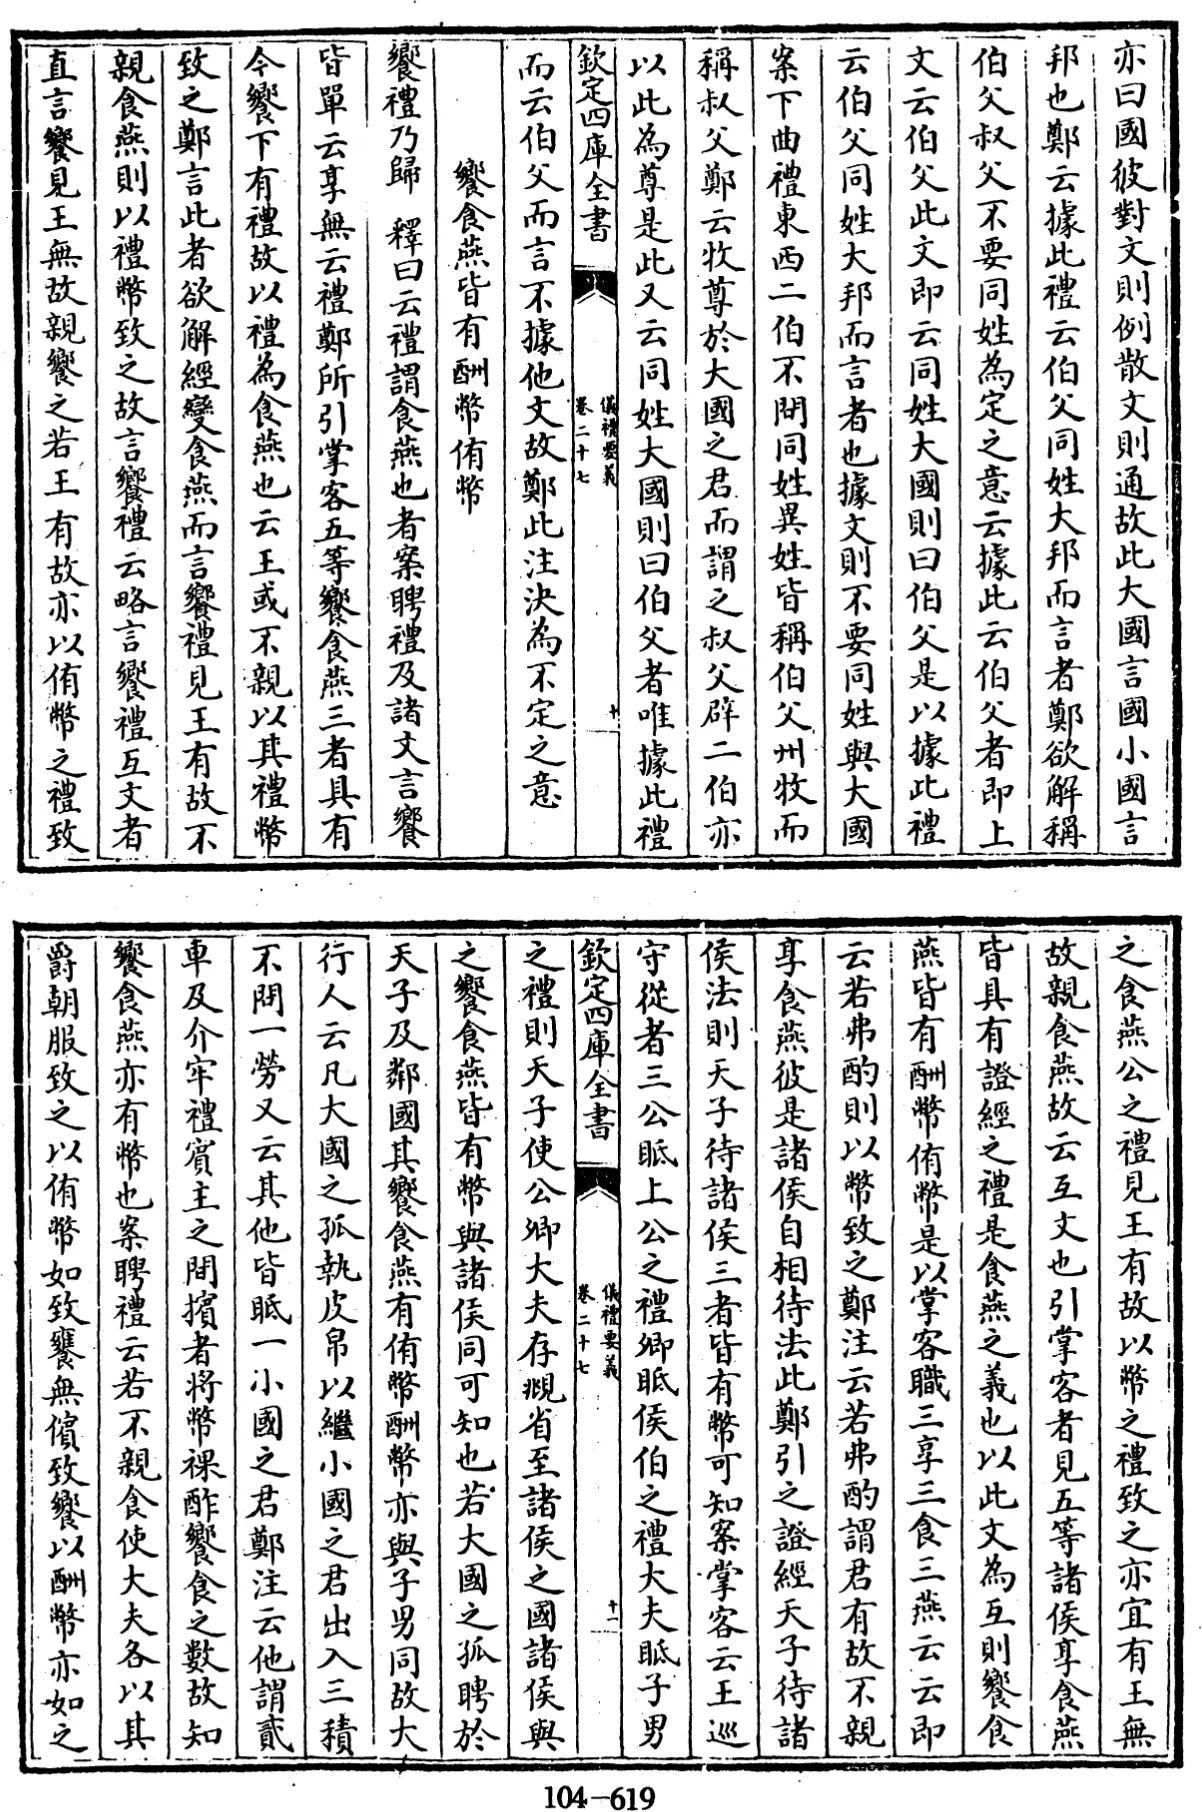 亦曰國彼對文則例散文則通故此大國言國小國言
邦也鄭云據此禮云伯父同姓大邦而言者鄭欲解稱
伯父叔父不要同姓為定之意云據此云伯父者即上
文云伯父此文即云同姓大國則曰伯父是以據此禮
云伯父同姓大邦而言者也據文則不要同姓與大國
案下曲禮東西二伯不問同姓異姓皆稱伯父州牧而
稱叔父鄭云牧尊於大國之君而謂之叔父辟二伯亦
以此為尊是此又云同姓大國則曰伯父者唯據此禮
欽定四庫全書
儀禮要義
卷二十七
十
而云伯父而言不據他文故鄭此注決為不定之意
饗食燕皆有酬幣侑幣
饗禮乃歸 釋曰云禮謂食燕也者案聘禮及諸文言饗
皆單云享無云禮鄭所引掌客五等饗食燕三者具有
今饗下有禮故以禮為食燕也云王或不親以其禮幣
致之鄭言此者欲解經變食燕而言饗禮見王有故不
親食燕則以禮幣致之故言饗禮云略言饗禮互文者
直言饗見王無故親饗之若王有故亦以侑幣之禮致
之食燕公之禮見王有故以幣之禮致之亦宜有王無
故親食燕故云互文也引掌客者見五等諸侯享食燕
皆具有證經之禮是食燕之義也以此文為互則饗食
燕皆有酬幣侑幣是以掌客職三享三食三燕云云即
云若弗酌則以幣致之鄭注云若弗酌謂君有故不親
享食燕彼是諸侯自相待法此鄭引之證經天子待諸
侯法則天子待諸侯三者皆有幣可知案掌客云王巡
守從者三公眡上公之禮卿眡侯伯之禮大夫眡子男
欽定四庫全書
儀禮要義
卷二十七
十一
之禮則天子使公卿大夫存覜省至諸侯之國諸侯與
之饗食燕皆有幣與諸侯同可知也若大國之孤聘於
天子及鄰國其饗食燕有侑幣酬幣亦與子男同故大
行人云凡大國之孤執皮帛以繼小國之君出入三積
不問一勞又云其他皆眡一小國之君鄭注云他謂貳
車及介牢禮賓主之間擯者將幣祼酢饗食之數故知
饗食燕亦有幣也案聘禮云若不親食使大夫各以其
爵朝服致之以侑幣如致饔無儐致饗以酬幣亦如之
104-619